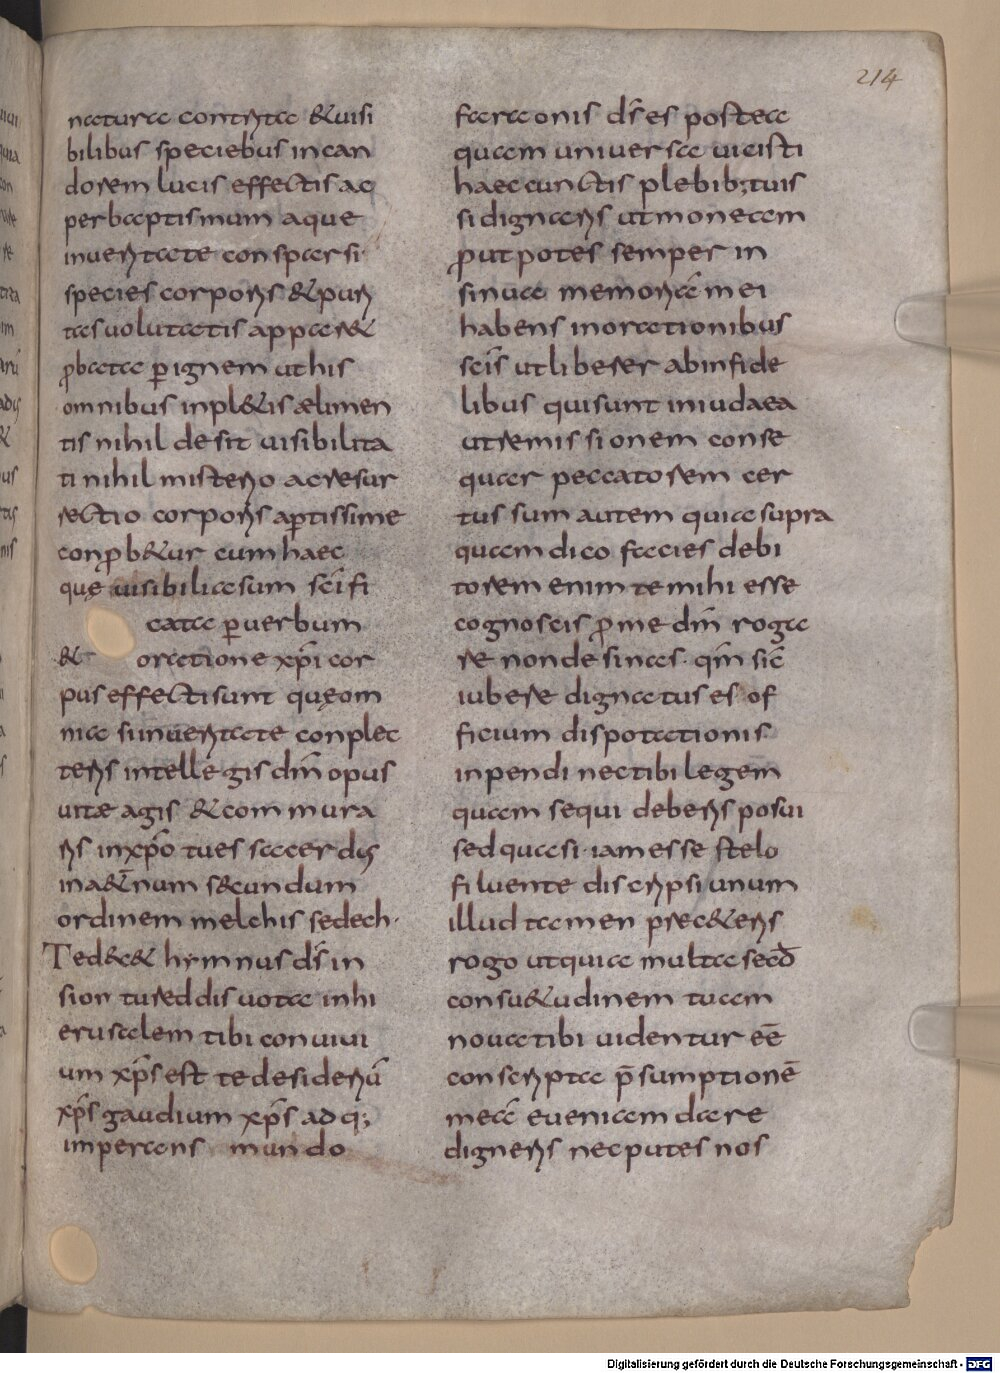 214
natura contrita & uisi
bilibus speciebus in can
dorem lucis effectis ac
per baptismum aque
inueritate conspersi
species corporis & puri
tas uolutatis appare&
ꝓbata ꝑ ignem ut his
omnibus inpl&is ælimen
tis nihil desit uisibilita
ti nihil misterio ac resur
rectio corporis aꝑtissime
conꝓb&ur cum haec
quę uisibilia sum sc̄ifi
cata ꝑ uerbum
& oratione xp̄i cor
pus effecti sunt quęom
nia sunueritate conplec
teris intellegis dn̄i opus
uitæ agis & commura
ris in xp̄o tu es sacerdos
in a&̄num s&cundum
ordinem melchisedech·
Tedec& hymnus ds̄ in
sion tu reddis uota inhi
erusalem tibi conuiui
um xp̄s est te desideriū
xp̄s gaudium xp̄s adq;
imperans mundo
faraonis ds̄ es postea
quam uniuersa uicisti
haec cunctis plebib; tuis
si digneris ut monecem
ꝓut potes semper in
sinua memoriā mei
habens in orationibus
sc̄īs ut liberer ab infide
libus qui sunt in iudaea
ut remissionem conse
quar peccatorem cer
tus sum autem quia supra
quam dico facies debi
torem enim te mihi esse
cognoscis ꝓ me dn̄m roga
re non desinas· qm̄ sic̄
iubere dignatus es of
ficium dispotationis
inpendi nec tibi legem
quam sequi deberis posui
sed quasi iam esse stelo
filuente discripsi unum
illud tamen p̄sec&eris
rogo ut quia multa secd̄
consu&udinem tuam
noua tibi uidentur eē
conscripta p̄sumptionē
meā eueniam dare
digneris nec putes nos
Digitalisierung gefördert durch die Deutsche Forschungsgemeinschaft - DFG